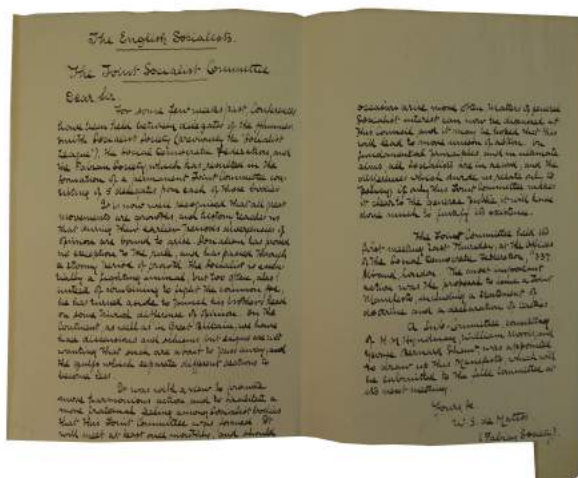 The English Socialists.
The Joint Socialist Committee
Dear Sir,
For some few weeks past, Conferences
have been held between delegates of the Hammer-
smith Socialist Society (previously the "Socialist
League"), the Social Democratic Federation, and
the Fabian Society, which has resulted in the
formation of a permanent Joint Committee con-
sisting of 5 delegates from each of those bodies.
It is now well recognised that all great
movements are growths, and history teaches us
that during their earlier periods divergencies of
opinion are bound to arise. Socialism has proved
no exception to the rule, and has passed through
a stormy period of growth. The Socialist is essen-
tially a fighting animal, but too often, alas!
instead of combining to fight the common foe,
he has turned aside to his brother's head
on some trivial difference of opinion. On the
Continent, as well as in Great Britain, we have
had dissensions and schisms but signs are not
wanting that such are about to pass away, and
the gulfs which separate different sections to
become less.
It was with a view to promote
more harmonious action and to facilitate a
more fraternal feeling among Socialist bodies
that this Joint Committee was formed. It
will meet at least once monthly, and should
occasion arise more often. Matters of general
Socialist interest can now be discussed at
this Council, and it may be hoped that this
will lead to more union of action. On
fundamental principles and on ultimate
aims all Socialists are in accord, and the
differences which divide us relate only to
policy. If only this Joint Committee makes
it clear to the General Public it will have
done much to justify its existence.
The Joint Committee held its
first meeting last Thursday, at the Offices
of the Social Democratic Federation, 337
Strand, London. The most important
action was the proposal to issue a Joint
Manifesto, including a statement of
doctrine and a declaration of tactics.
A Sub-Committee, consisting
of H. M. Hyndman, William Morris, and
George Bernard Shaw was appointed
to draw up this Manifesto, which will
be submitted to the full Committee at
its next meeting.
Yours, &c
W. S. De Mattos
(Fabian Society).